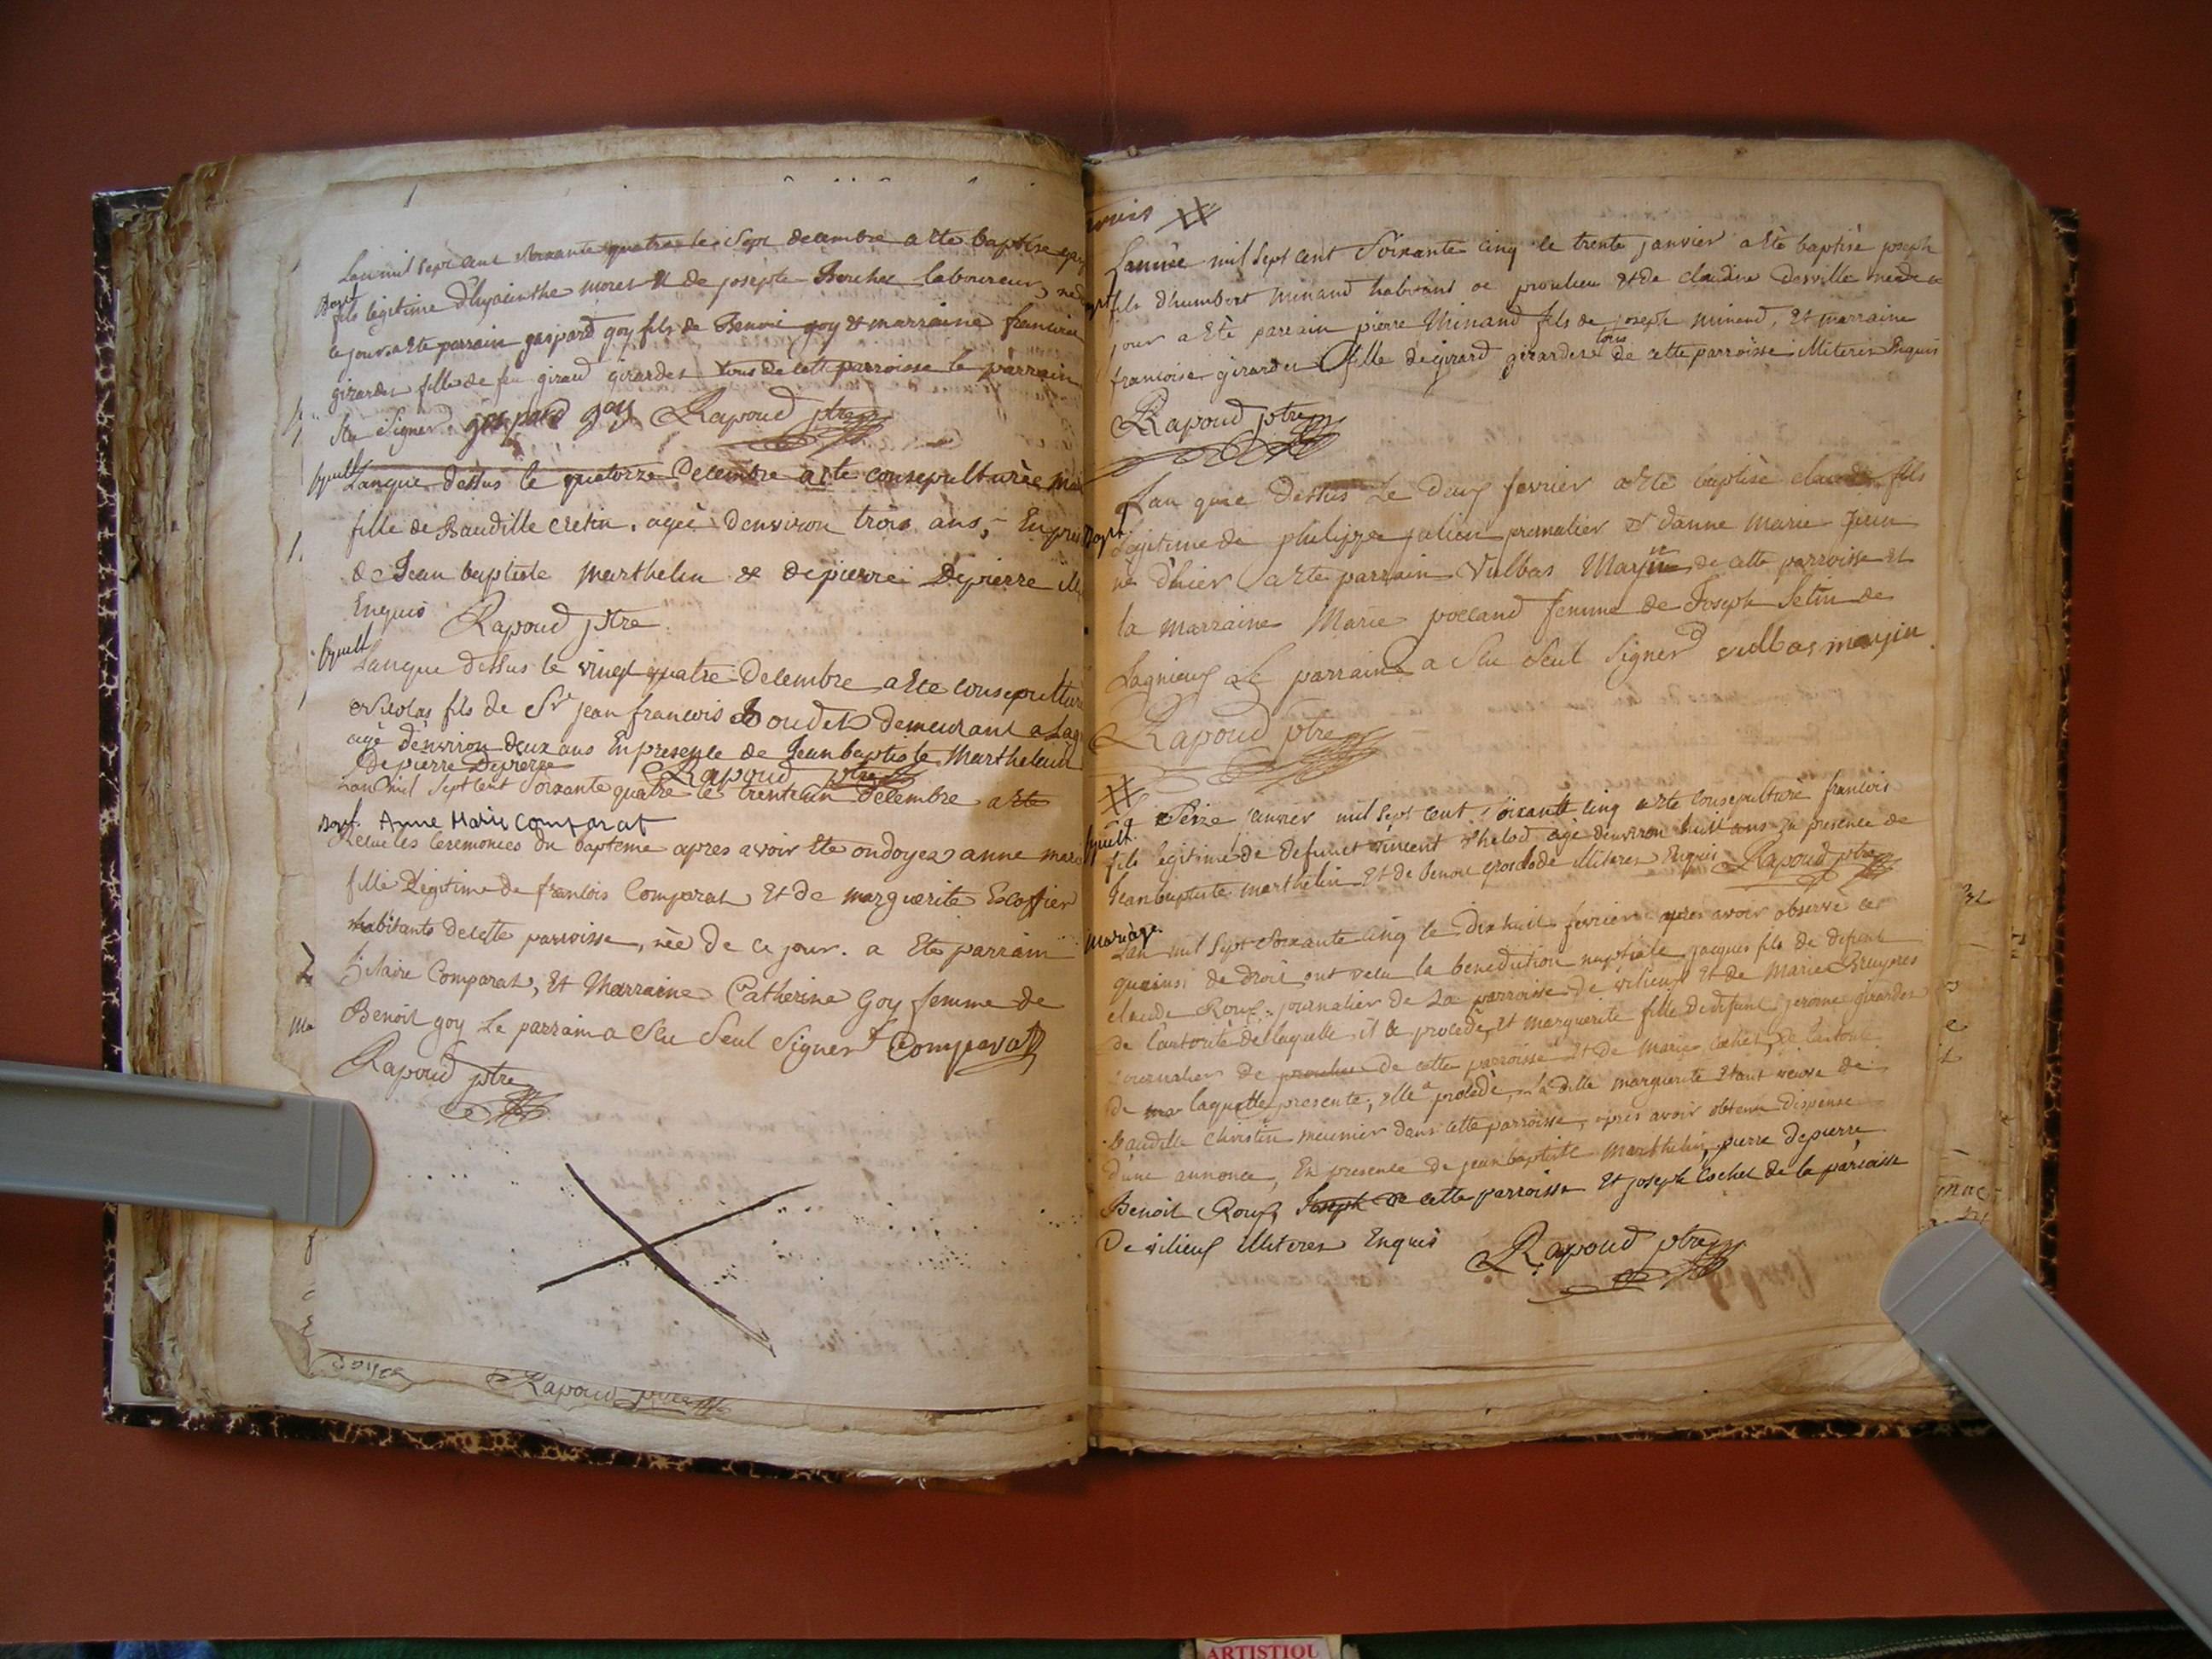 Lan mil sept cent soixante quatre le sept decembre a ete baptise
Bapt
fils legitime d'hyacinthe moret & de josepte Borchet laboureur
ce jour. a ete parrain gaspard goy fils de Benoit goy & marraine francoise
girardet fille de feu giraud girardet tous de cette parroisse le parrain
a scu Signer gaspard goy Rapoud ptre
sepult
Lan que dessus le quatorze Decembre a ete consepulturée
fille de Baudille cretin. agée d'environ trois ans, En
de Jean baptiste Marthelin & de pierre Depierre
Enquis Rapoud ptre
sepult
Lan que dessus le vingt quatre Decembre a ete consepulturé
Nicolas fils de Sr jean francois Boudet demeurant a
agé d'environ deux ans En presence de Jean baptiste Marthelin
& de pierre Depierre Rapoud ptre
Lan mil sept cent soixante quatre le trente un decembre a ete
Bapt. Anne Marie Comparat
Recue les Ceremonies du bapteme apres avoir ete ondoyez anne
fille Legitime de francois Comparat et de marguerite Escoffier
habitants de cette parroisse, née de ce jour. a Ete parrain
hilaire Comparat, Et Marraine Catherine Goy femme de
Benoit goy Le parrain a Scu Seul Signer h Comparat
Rapoud ptre
Rapoud ptre
L'année mil sept cent Soixante cinq le trente janvier a ète baptisè joseph
fils d'humbert minand habitant de proulieu et de claudine derville né de ce
jour a Etè parrain pierre Minand fils de joseph minand, et marraine
tous
francoise girardet fille de girard girardet de cette parroisse illiteres Enquis
Rapoud ptre
Lan que Dessus Le Deux fevrier a ete baptisè claude fils
Bapt
Legitime de philippe julien et d'anne marie
né d'hier a ete parrain Vulbas Marjin de cette parroisse et
la marraine Marie polland femme de Joseph Setin de
Lagnieux Le parrain a Scu Seul Signer vulbas marjin
Rapoud ptre
Le Seize janvier mil sept cent soixante cinq a ete consepulturé francois
sepult
fils legitime de defunct vincent thelod agé d'environ huit ans En presence de
Jean baptiste marthelin Et de Benoit illiteres Enquis Rapoud ptre
Mariage.
Lan mil sept soixante cinq le dixhuit fevrier apres avoir observé ce
qui de Droit ont recu la benediction nuptiale jacques fils de defunt
claude Roux journalier de La parroisse de vilieux Et de Marie Bruyeres
de l'autorité de laquelle il a procedè, Et marguerite fille de defunt jerome girardet
journalier de proulieu de cette parroisse et de Marie cochet, de l'autorité
de ma laquelle presente, elle a procedè, La ditte marguerite etant veuve de
baudille Christin meunier dans cette parroisse, apres avoir obtenu dispense
d'une annonce, En presence de jean baptiste Marthelin, pierre depierre
Benoit Roux, Joseph de cette parroisse Et joseph Cochet de la paroisse
De vilieux illiteres Enquis Rapoud ptre
ARTISTIQU